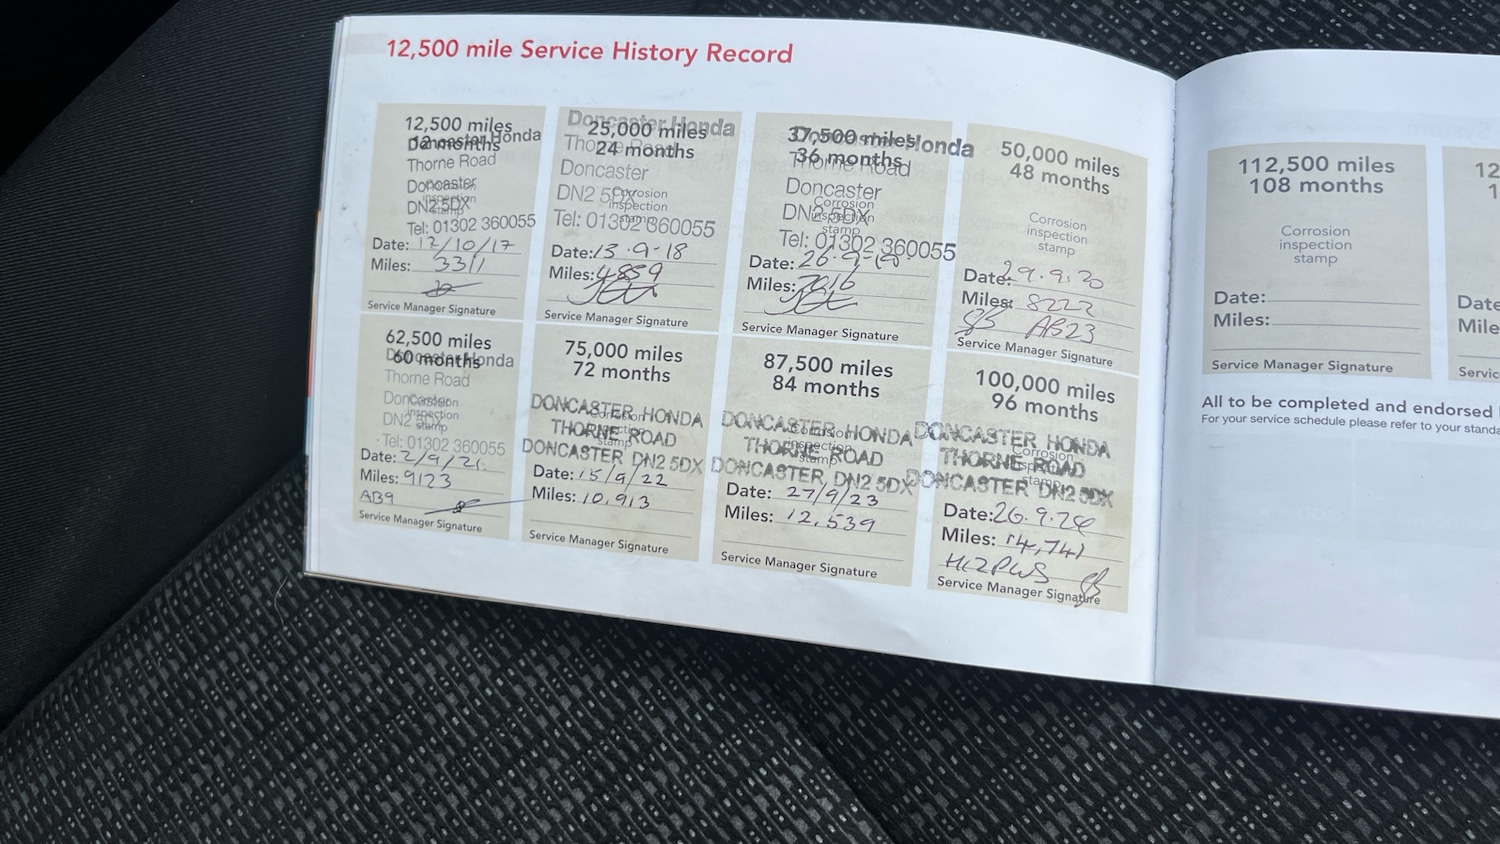 12,500 mile Service History Record
12,500 miles
12 months
Doncaster Honda
Thorne Road
Doncaster
DN2 5DX
Tel: 01302 360055
Corrosion
inspection
stamp
Date: 12/10/17
Miles: 3311
Service Manager Signature
25,000 miles
24 months
Doncaster Honda
Thorne Road
Doncaster
DN2 5DX
Tel: 01302 360055
Corrosion
inspection
stamp
Date: 13.9-18
Miles: 4859
Service Manager Signature
37,500 miles
36 months
Doncaster Honda
Thorne Road
Doncaster
DN2 5DX
Tel: 01302 360055
Corrosion
inspection
stamp
Date: 26-9-19
Miles: 7016
Service Manager Signature
50,000 miles
48 months
Corrosion
inspection
stamp
Date: 29.9.20
Miles: 8222
AB23
Service Manager Signature
62,500 miles
60 months
Doncaster Honda
Thorne Road
Doncaster
DN2 5DX
Tel: 01302 360055
Corrosion
inspection
stamp
Date: 2/9/21
Miles: 9123
AB9
Service Manager Signature
75,000 miles
72 months
DONCASTER HONDA
THORNE ROAD
DONCASTER DN2 5DX
Corrosion
inspection
stamp
Date: 15/9/22
Miles: 10,913
Service Manager Signature
87,500 miles
84 months
DONCASTER HONDA
THORNE ROAD
DONCASTER, DN2 5DX
Corrosion
inspection
stamp
Date: 27/9/23
Miles: 12,539
Service Manager Signature
100,000 miles
96 months
DONCASTER HONDA
THORNE ROAD
DONCASTER DN2 5DX
Corrosion
inspection
stamp
Date: 26.9.24
Miles: 14,741
Service Manager Signature
112,500 miles
108 months
Corrosion
inspection
stamp
Date:
Miles:
Service Manager Signature
12
1
Date
Mile
Servic
All to be completed and endorsed
For your service schedule please refer to your standa